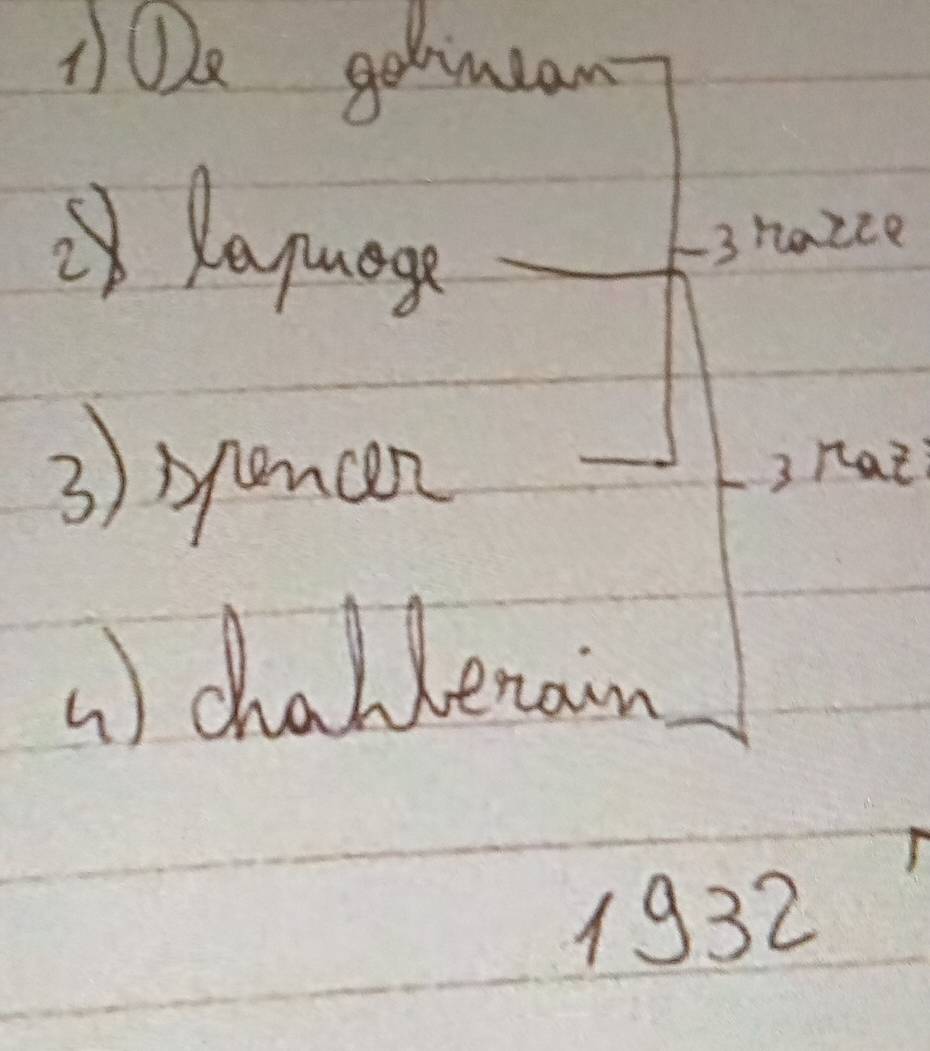 1) De gobinean
2) lapuoge
3 razze
3) spencer
3 raz
4) chahberain
1932